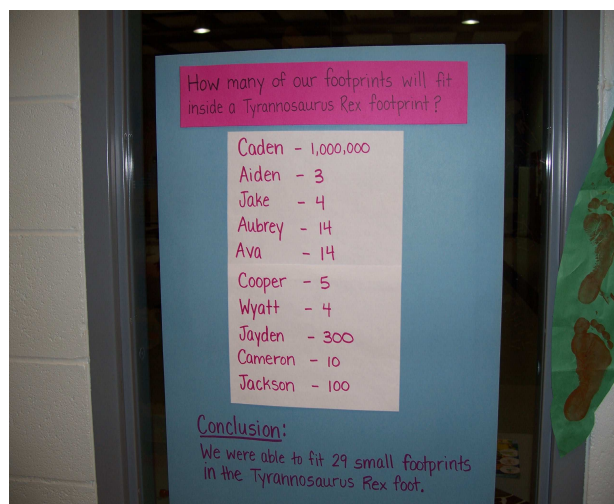 How many of our footprints will fit
inside a Tyrannosaurus Rex footprint?
Caden - 1,000,000
Aiden - 3
Jake - 4
Aubrey - 14
Ava - 14
Cooper - 5
Wyatt - 4
Jayden - 300
Cameron - 10
Jackson - 100
Conclusion:
We were able to fit 29 small footprints
in the Tyrannosaurus Rex foot.